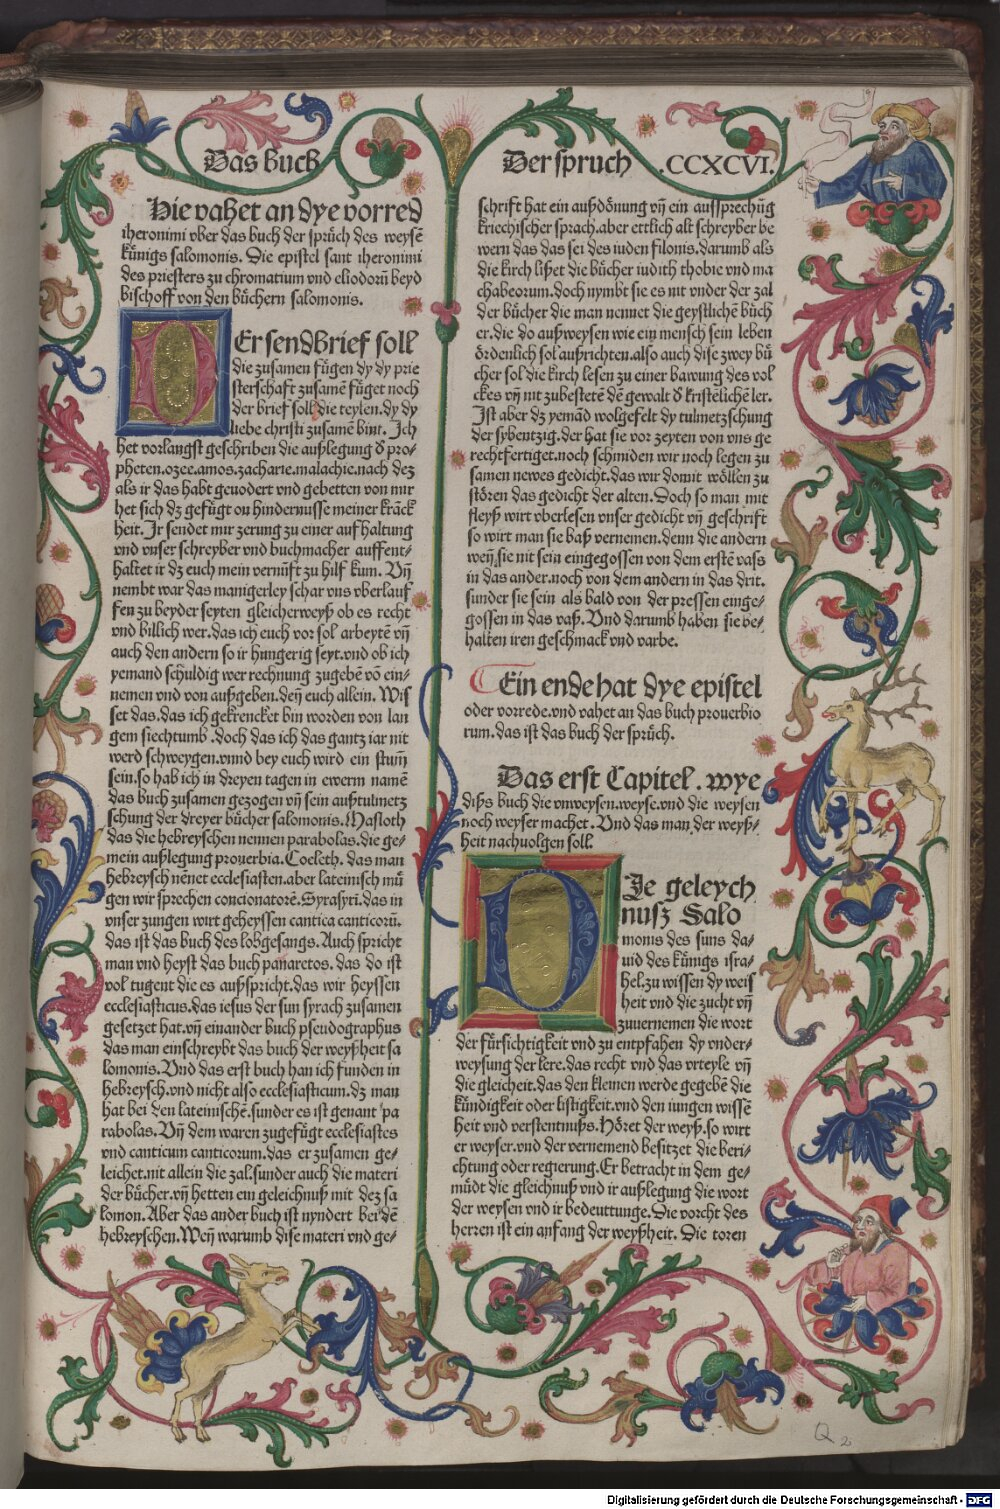 Das buch
Der spruch .CCXCVI.
Hie vahet an dye vorred
iheronimi vber das buch der sprüch des weysē
künigs salomonis. Die epistel sant iheronimi
des priesters zu chromatium vnd eliodorū beyd
bischoff von den büchern salomonis.
DEr sendbrief soll
die zusamen fügen dy dy prie
sterschafft zusamē füget noch
der brief soll die teylen. dy dy
liebe christi zusamē bint. Ich
het vorlangst geschriben die außlegung d᷑ pro⸗
pheten. ozee. amos. zacharie. malachie. nach dez
als ir das habt geuodert vnd gebetten von mir
het sich dz gefügt on hindernusse meiner krāck
heit. Ir sendet mir zerung zu einer aufhaltung
vnd vnser schreyber vnd buchmacher auffent⸗
haltet ir dz euch mein vernūft zu hilf kum. Vn̄
nembt war das manigerley schar vns vberlauf
fen zu beyder seyten gleicherweyß ob es recht
vnd billich wer. das ich euch vor sol arbeytē vn̄
auch den andern so ir hungerig seyt. vnd ob ich
yemand schuldig wer rechnung zugebē vō ein⸗
nemen vnd von außgeben. den̄ euch allein. Wis
set das. das ich gekrencket bin worden von lan
gem siechtumb. doch das ich das gantz iar nit
werd schweygen. vnnd bey euch wird ein stum̄
sein. so hab ich in dreyen tagen in ewerm namē
das buch zusamen gezogen vn̄ sein außtulmetz
schung der dreyer bücher salomonis. Masloth
das die hebreyschen nennen parabolas. die ge⸗
mein außlegung prouerbia. Coeleth. das man
hebreysch nēnet ecclesiasten. aber lateinisch mü
gen wir sprechen concionatorē. Syrasyri. das in
vnser zungen wirt geheyssen cantica canticorū.
das ist das buch des lobgesangs. Auch spricht
man vnd heyst das buch panaretos. das do ist
vol tugent die es außspricht. das wir heyssen
ecclesiasticus. das iesus der sun syrach zusamen
gesetzet hat. vn̄ einander buch pseudographus
das man einschreybt das buch der weyßheit sa
lomonis. Vnd das erst buch han ich funden in
hebreysch. vnd nicht also ecclesiasticum. dz man
hat bei den lateinischē. sunder es ist genant pa
rabolas. Vn̄ dem waren zugefügt ecclesiastes
vnd canticum canticorum. das er zusamen ge⸗
leichet. nit allein die zal. sunder auch die materi
der bücher. vn̄ hetten ein geleichnuß mit dez sa
lomon. Aber das ander buch ist nyndert bei dē
hebreyschen. Wen̄ warumb dise materi vnd ge⸗
schrift hat ein außdönung vn̄ ein aussprechūg
kriechischer sprach. aber ettlich alt schreyber be
wern das das sei des iuden filonis. darumb als
die kirch lißet die bücher iudith thobie vnd ma
chabeorum. doch nymbt sie es nit vnder der zal
der bücher die man nennet die geystlichē büch
er. die do außweysen wie ein mensch sein leben
ördenlich sol außrichten. also auch dise zwey bü
cher sol die kirch lesen zu einer bawung des vol
ckes vn̄ nit zubestetē dē gewalt d᷑ kristēlichē ler.
Ist aber dz yemād wolgefelt dy tulmetzschung
der sybentzig. der hat sie vor zeyten von vns ge
rechtfertiget. noch schmiden wir noch legen zu
samen newes gedicht. das wir domit wöllen zu
stören das gedicht der alten. Doch so man mit
fleyß wirt vberlesen vnser gedicht vn̄ geschrift
so wirt man sie baß vernemen. denn die andern
wen̄ sie nit sein eingegossen von dem erstē vass
in das ander. noch von dem andern in das drit.
sunder sie sein als bald von der pressen einge⸗
gossen in das vaß. Vnd darumb haben sie be⸗
halten iren geschmack vnd varbe.
Ein ende hat dye epistel
oder vorrede. vnd vahet an das buch prouerbio
rum. das ist das buch der sprüch.
Das erst Capitel. wye
dißs buch die vnweysen. weyse. vnd die weysen
noch weyser machet. Vnd das man der weyß⸗
heit nachuolgen soll.
DIe geleych
nusz Salo
monis des suns da⸗
uid des künigs isra⸗
hel. zu wissen dy weis
heit vnd die zucht vn̄
zuuernemen die wort
der fürsichtigkeit vnd zu entpfahen dy vnder⸗
weysung der lere. das recht vnd das vrteyle vn̄
die gleicheit. das den kleinen werde gegebē die
kündigkeit oder listigkeit. vnd den iungen wissē
heit vnd verstentnuß. Höret der weyß. so wirt
er weyser. vnd der vernemend besitzet die beri⸗
chtung oder regierung. Er betracht in dem ge⸗
müdt die gleichnuß vnd ir außlegung die wort
der weysen vnd ir bedeuttunge. Die vorcht des
herren ist ein anfang der weyßheit. Die toren
Q 2
Digitalisierung gefördert durch die Deutsche Forschungsgemeinschaft - DFG